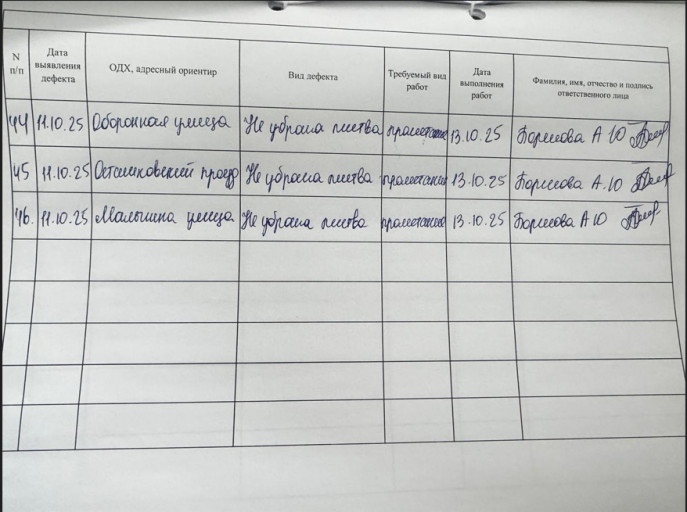 N п/п Дата выявления дефекта ОДХ, адресный ориентир Вид дефекта Требуемый вид работ Дата выполнения работ Фамилия, имя, отчество и подпись ответственного лица
44 11.10.25 Оборонная улица Не убрана листва прометание 13.10.25 А Ю
45 11.10.25 Осташковский проезд Не убрана листва прометание 13.10.25 А.Ю
46. 11.10.25 Малыгина улица Не убрана листва прометание 13.10.25 А Ю